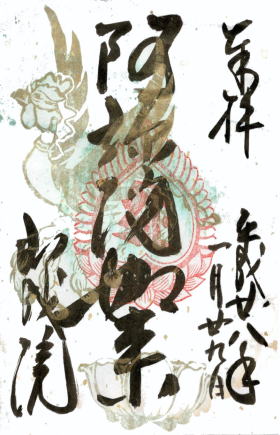 奉拝
平成廿八年
一月廿九日
阿弥陀如来
龍泉院